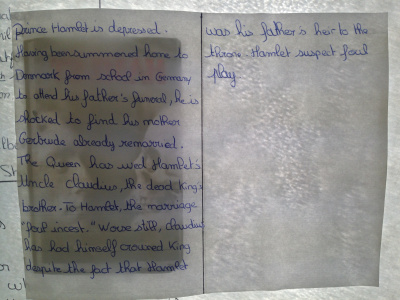 Prince Hamlet is depressed.
Having been summoned home to
Denmark from school in Germany
to attend his father's funeral, he is
shocked to find his mother
Gertrude already remarried.
The Queen has wed Hamlet's
Uncle Claudius, the dead King's
brother. To Hamlet, the marriage
"foul incest." Worse still, Claudius
has had himself crowned King
despite the fact that Hamlet
was his father's heir to the
throne. Hamlet suspect foul
play